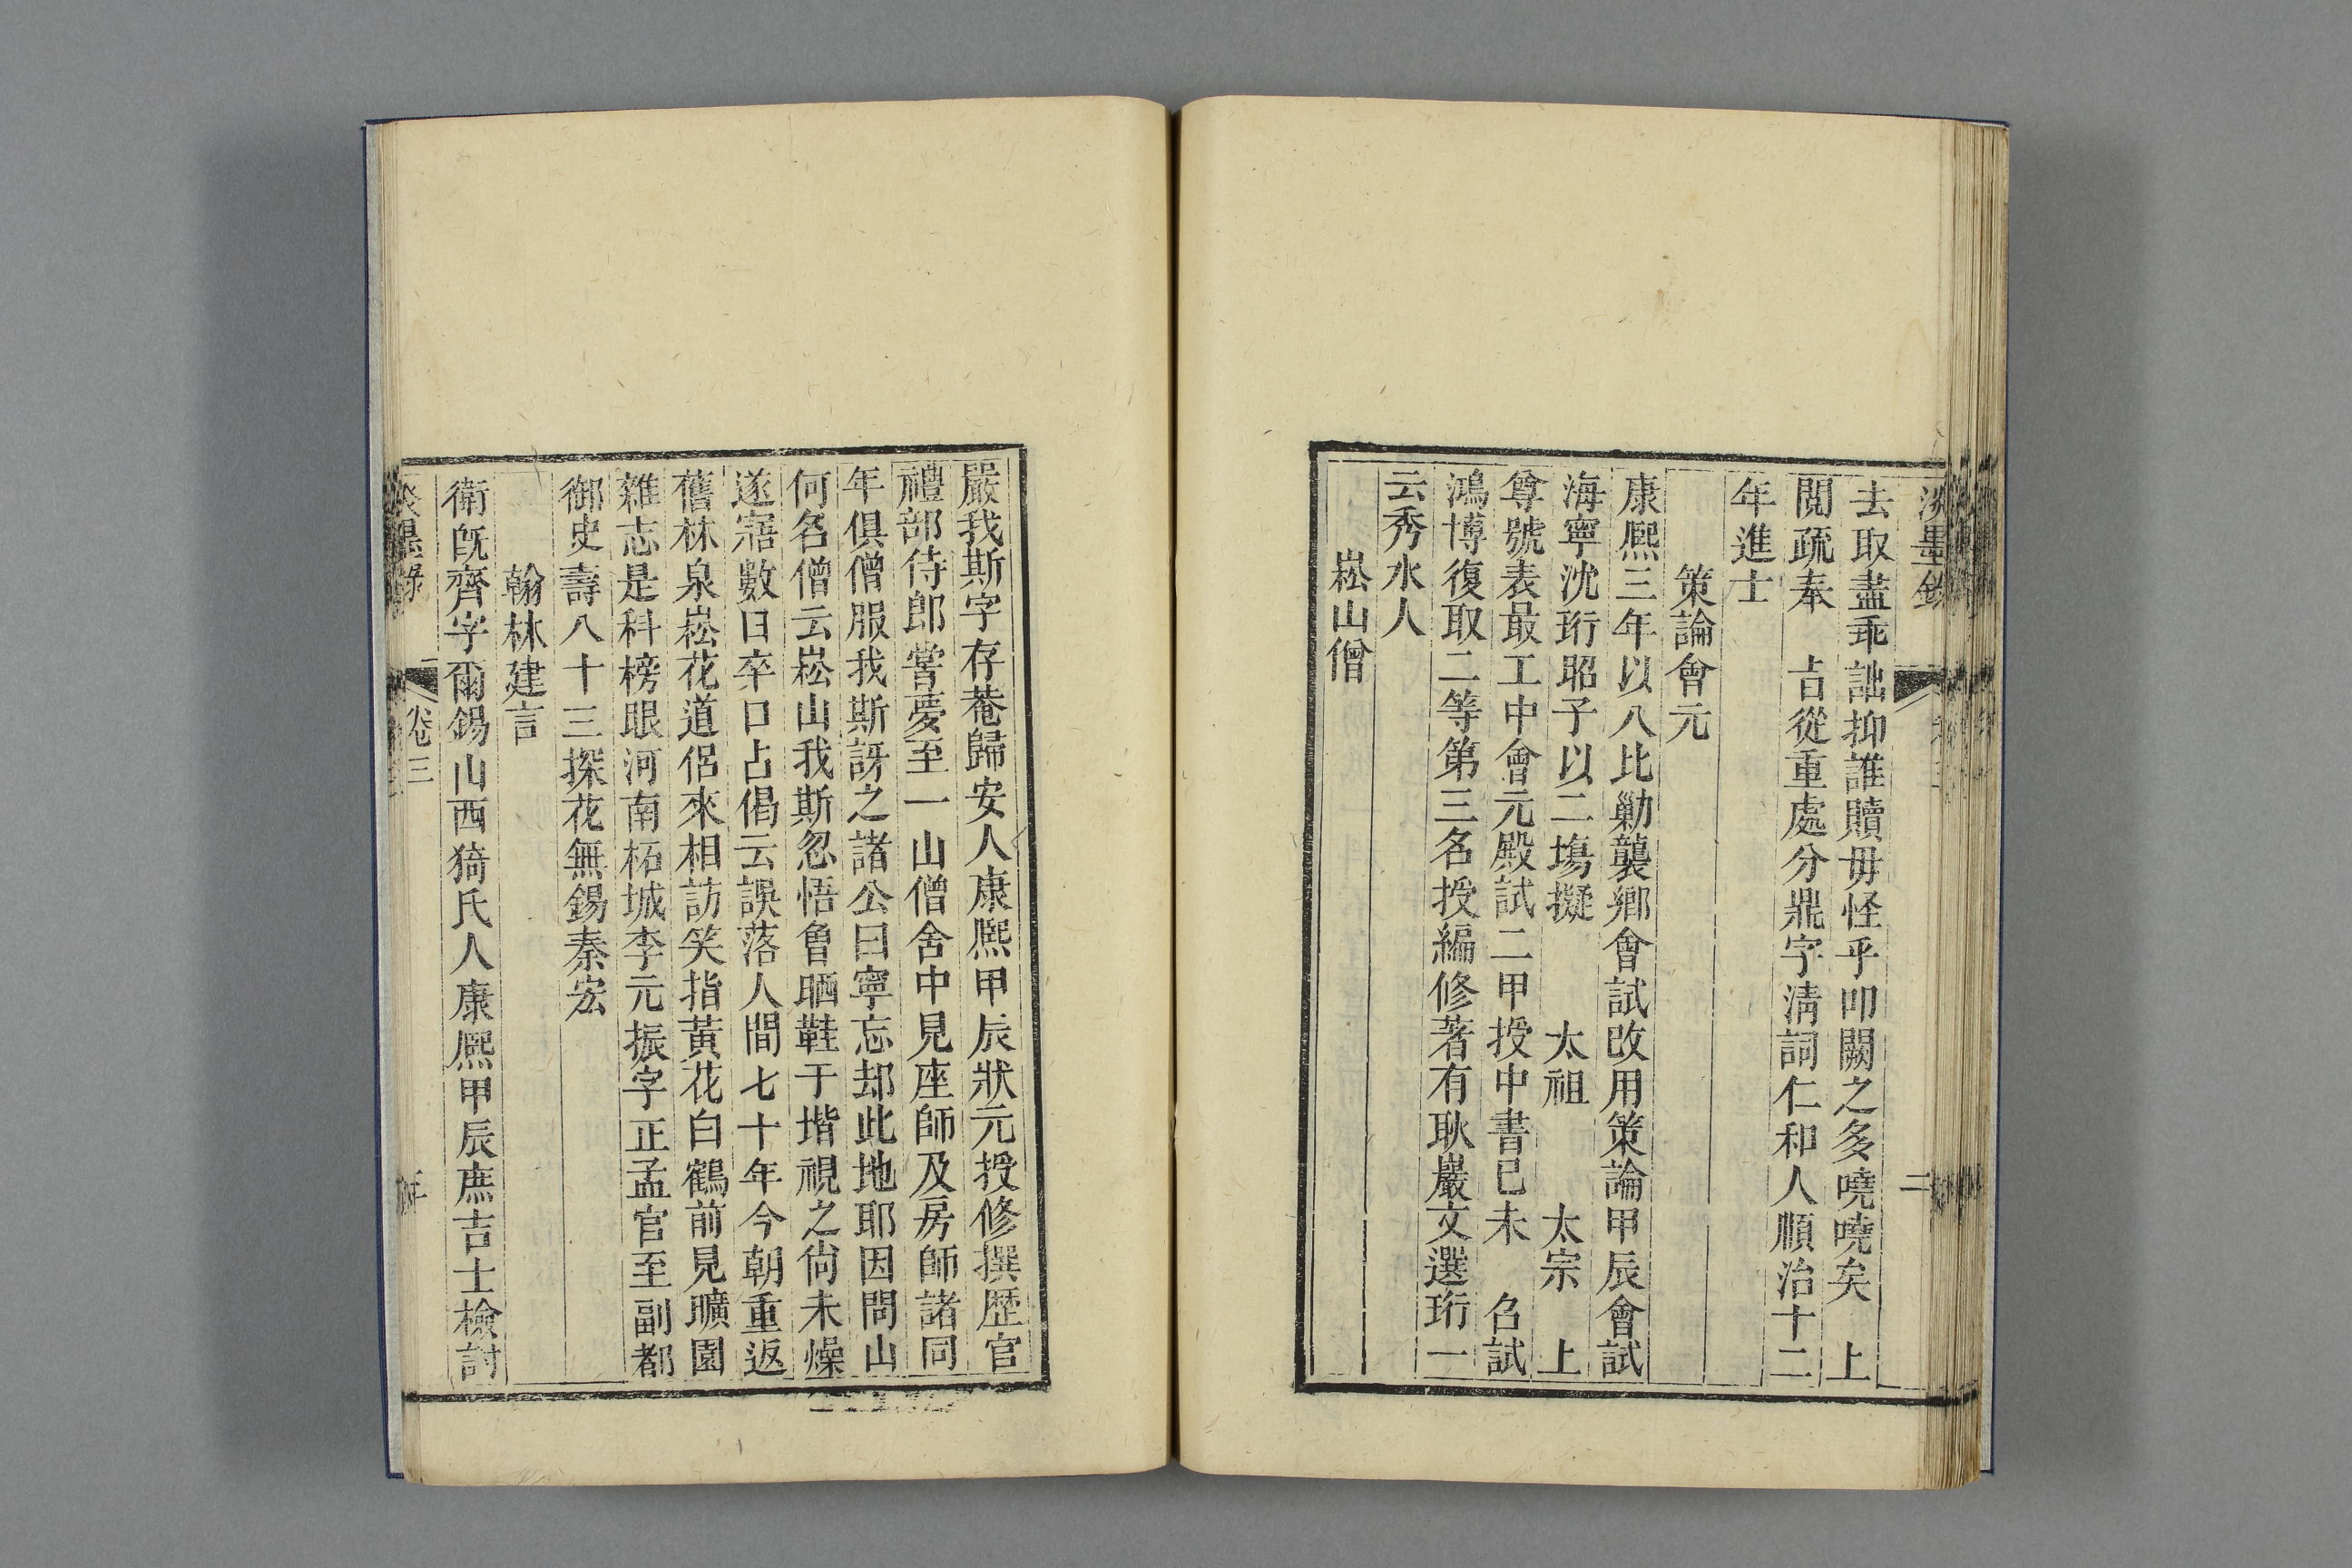 淡墨錄
二
去取盡乖詘抑誰贖毋怪乎叩闕之多嘵嘵矣　上
閱疏奉　㫖從重處分鼎字淸詞仁和人順治十二
年進士
策論會元
康熙三年以八比勦襲鄉會試改用策論甲辰會試
海寧沈珩昭子以二塲擬　太祖　太宗　上
尊號表最工中會元殿試二甲授中書已未　召試
鴻博復取二等第三名授編修著有耿巖文選珩一
云秀水人
崧山僧
嚴我斯字存菴歸安人康熙甲辰狀元授修撰歷官
禮部侍郎嘗夢至一山僧舍中見座師及房師諸同
年俱僧服我斯訝之諸公曰寧忘却此地耶因問山
何名僧云崧山我斯忽悟曾晒鞋于堦視之尙未燥
遂寤數日卒口占偈云誤落人間七十年今朝重返
舊林泉崧花道侶來相訪笑指黃花白鶴前見曠園
雜志是科榜眼河南柘城李元振字正孟官至副都
御史壽八十三探花無錫秦宏
翰林建言
衛旣齊字爾錫山西猗氏人康熙甲辰庶吉士檢討
淡墨錄
卷三